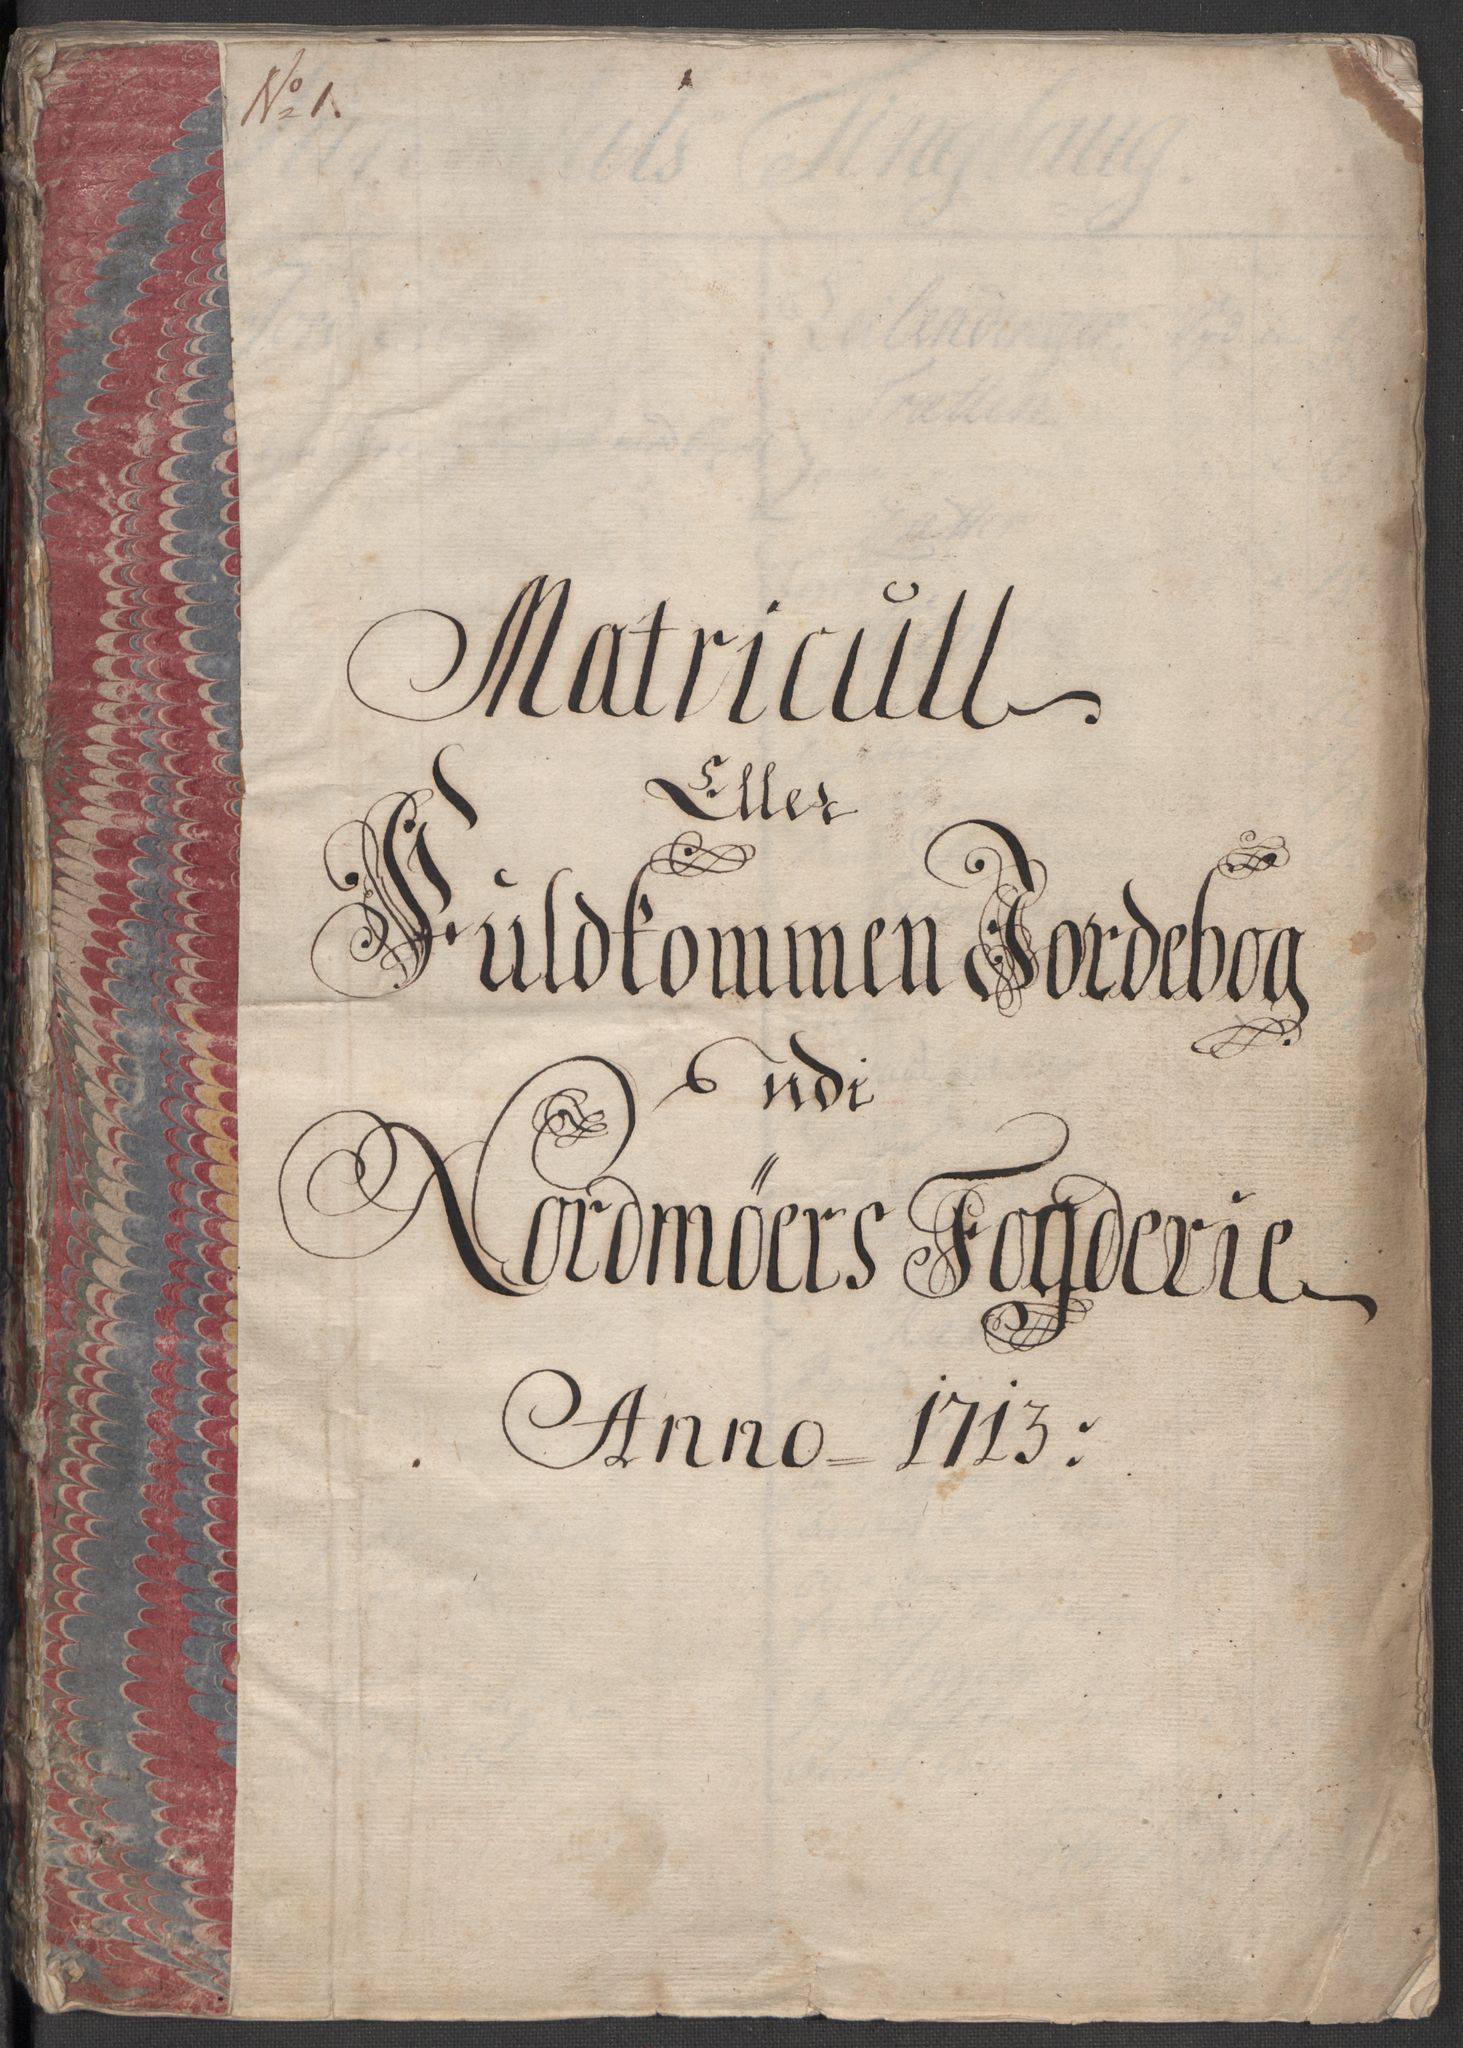 No 1.
Tinglaug.
Matricull
Eller
Fuldkommen Jordebog
udi
Nordmöers Fogderie
Anno = 1713: